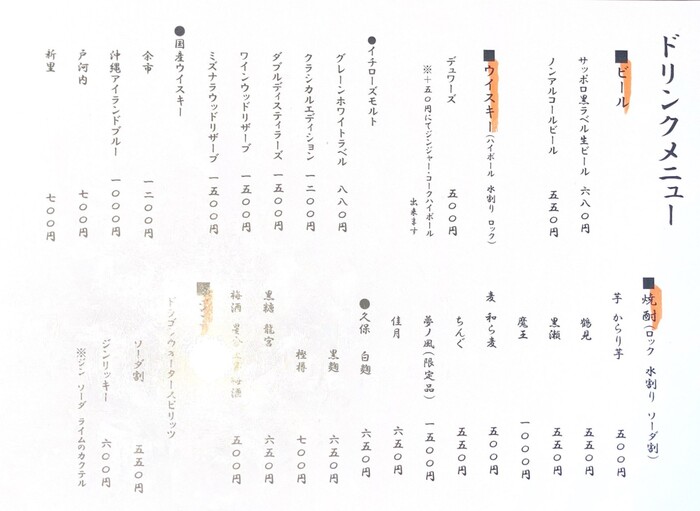 ドリンクメニュー
■ビール
サッポロ黒ラベル生ビール 六八〇円
ノンアルコールビール 五五〇円
■ウイスキー(ハイボール 水割り ロック)
デュワーズ 五〇〇円
※+五〇円にてジンジャー・コークハイボール
出来ます
●イチローズモルト
グレーンホワイトラベル 八八〇円
クラシカルエディション 一二〇〇円
ダブルディスティラーズ 一五〇〇円
ワインウッドリザーブ 一五〇〇円
ミズナラウッドリザーブ 一五〇〇円
●国産ウイスキー
余市 一二〇〇円
沖縄アイランドブルー 一〇〇〇円
戸河内 七〇〇円
祈里 七〇〇円
■焼酎(ロック 水割り ソーダ割)
芋 からり芋 五〇〇円
鶴見 五五〇円
黒瀬 五五〇円
魔王 一〇〇〇円
麦 和ら麦 五〇〇円
ちんぐ 五五〇円
夢ノ風(限定品) 一五〇〇円
佳月 六五〇円
●久保 白麹 六五〇円
黒麹 六五〇円
樫樽 七〇〇円
黒糖 龍宮 六五〇円
梅酒 星 梅酒 五〇〇円
■
ドラゴンウォータースピリッツ
ソーダ割 五五〇円
ジンリッキー 六〇〇円
※ジン ソーダ ライムのカクテル